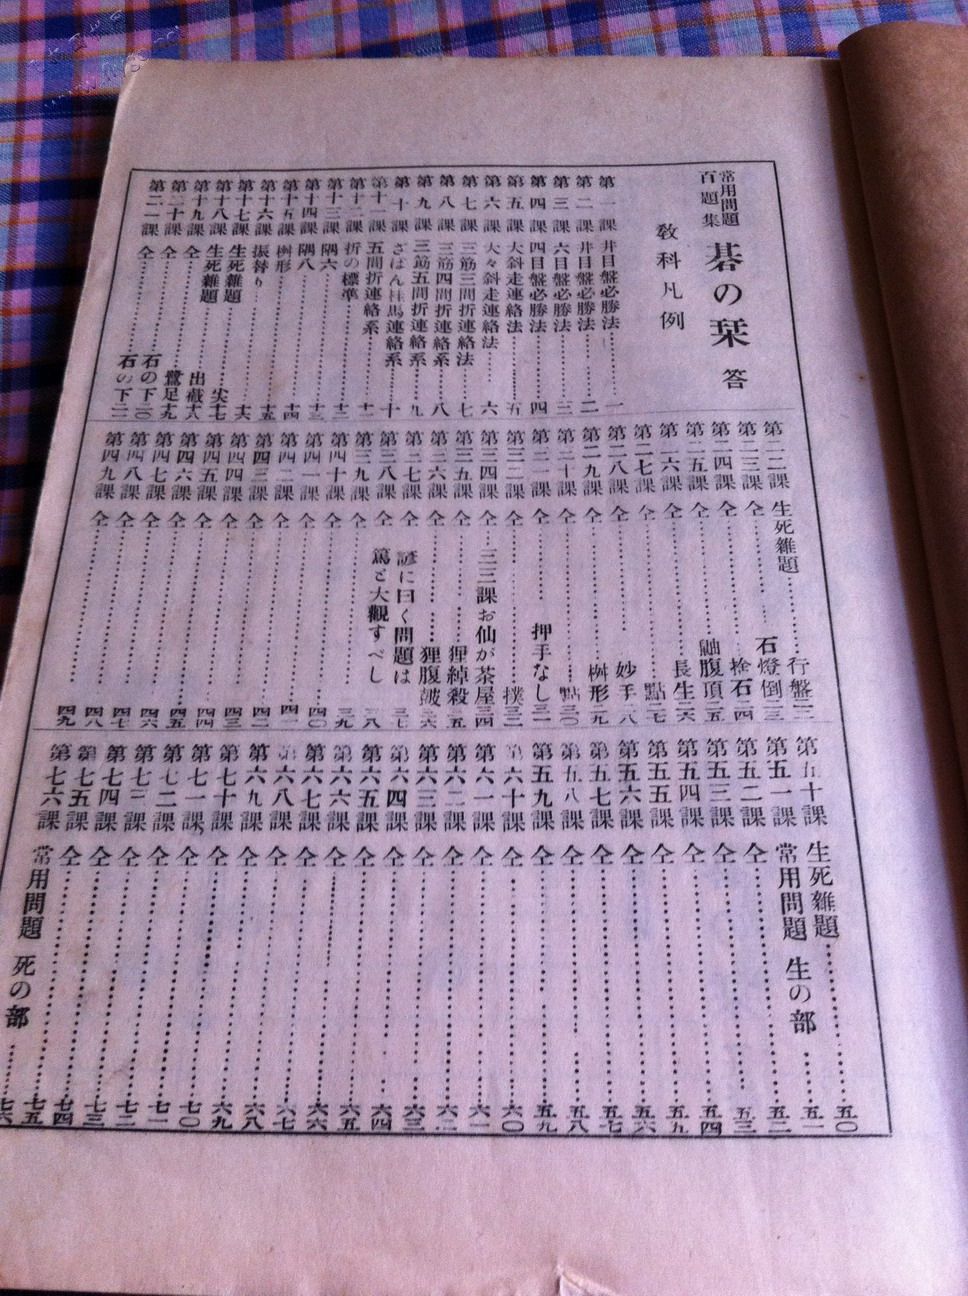 常用問題
百題集
碁の栞 答
教科凡例
第一課 井目盤必勝法 一
第二課 井目盤必勝法 二
第三課 六目盤必勝法 三
第四課 四目盤必勝法 四
第五課 大斜走連絡法 五
第六課 大々斜走連絡法 六
第七課 三筋三間折連絡法 七
第八課 三筋四間折連絡系 八
第九課 三筋五間折連絡系 九
第十課 ざはん桂馬連絡系 十
第十一課 五間折連絡系 十一
第十二課 折の標準 十二
第十三課 隅六 十三
第十四課 隅八 十四
第十五課 桝形 十五
第十六課 振替り 十六
第十七課 生死雜題
第十八課 生死雜題 尖 十七
第十九課 仝 出戯 十八
第二十課 仝 鷺足 十九
第二一課 仝 石の下 二〇
石の下 二一
第二二課 生死雜題 行盤 二二
第二三課 仝 石燈倒 二三
第二四課 仝 栓石 二四
第二五課 仝 鼬腹頂 二五
第二六課 仝 長生 二六
第二七課 仝 點 二七
第二八課 仝 妙手 二八
第二九課 仝 桝形 二九
第三十課 仝 點 三〇
第三一課 仝 押手なし 三一
第三二課 仝 撲 三二
第三四課 仝 三三課お仙が茶屋 三四
第三五課 仝 狸綽殺 三五
第三六課 仝 狸腹皷 三六
第三七課 仝 諺に曰く問題は 三七
第三八課 仝 篤と大觀すべし 三八
第三九課 仝 三九
第四十課 仝 四〇
第四一課 仝 四一
第四二課 仝 四二
第四三課 仝 四三
第四四課 仝 四四
第四五課 仝 四五
第四六課 仝 四六
第四七課 仝 四七
第四八課 仝 四八
第四九課 仝 四九
第五十課 生死雜題 五〇
第五一課 常用問題 生の部 五一
第五二課 仝 五二
第五三課 仝 五三
第五四課 仝 五四
第五五課 仝 五五
第五六課 仝 五六
第五七課 仝 五七
第五八課 仝 五八
第五九課 仝 五九
第六十課 仝 六〇
第六一課 仝 六一
第六二課 仝 六二
第六三課 仝 六三
第六四課 仝 六四
第六五課 仝 六五
第六六課 仝 六六
第六七課 仝 六七
第六八課 仝 六八
第六九課 仝 六九
第七十課 仝 七〇
第七一課 仝 七一
第七二課 仝 七二
第七三課 仝 七三
第七四課 仝 七四
第七五課 仝 七五
第七六課 常用問題 死の部 七六